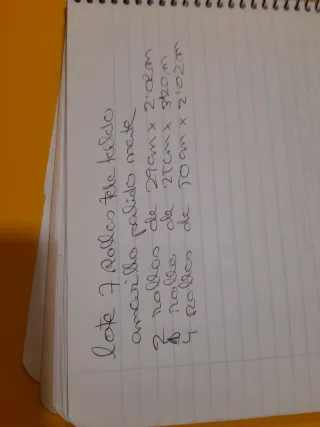 lote 7 Rollos tela toldo
amarillo palido mate
2 rollos de 29cm x 2'02m
1 rollo de 25cm x 3'20m
4 Rollos de 50cm x 2'02m